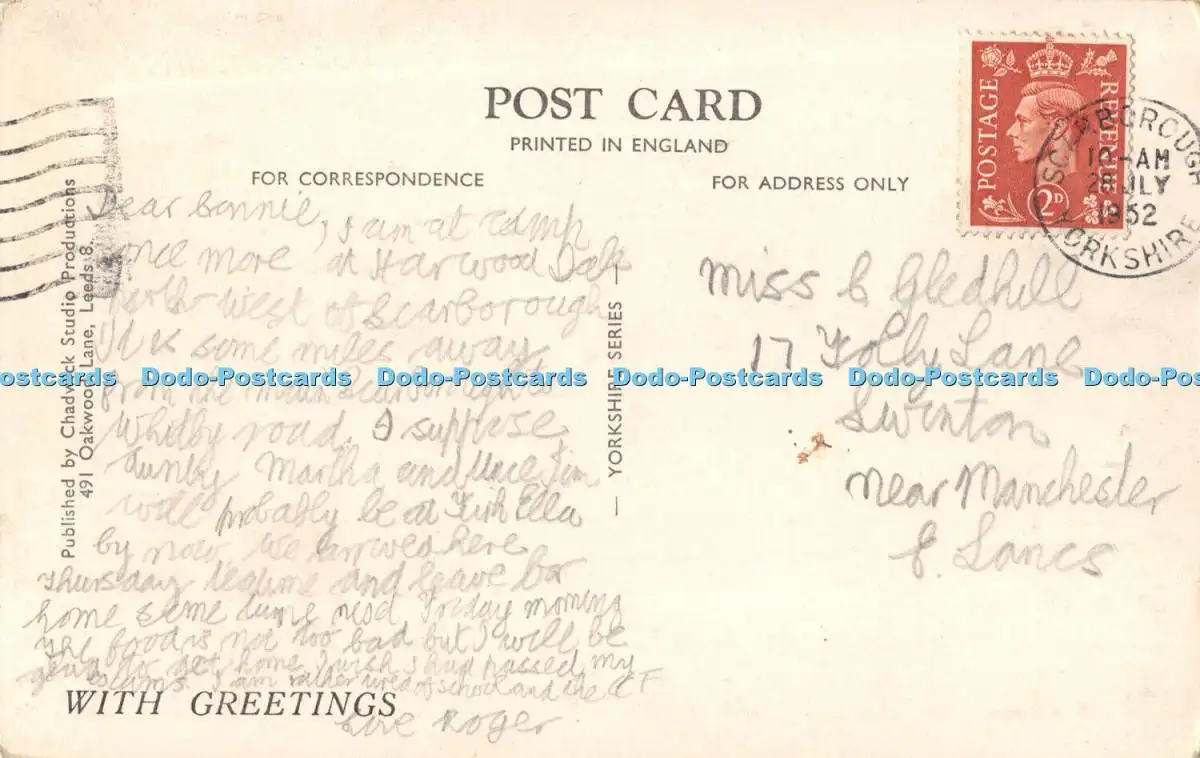 POST CARD
PRINTED IN ENGLAND
FOR CORRESPONDENCE
FOR ADDRESS ONLY
POSTAGE
REVENUE
2D
SCARBOROUGH
10-AM
28 JLY
1952
YORKSHIRE
Dear Connie,
I am at camp
once more at Harwood Dale
North-West of Scarborough
It is some miles away
from the main Scarborough
Whitby road. I suppose
Aunty Martha and Uncle Jim
will probably be at
by now. We arrived here
Thursday teatime and leave for
home some time next Friday morning
The food is not too bad but I will be
to get home. I wish I had passed my
exams. I am rather tired of school and the CCF
Love Roger
Miss C Gledhill
17 Folly Lane
Swinton
near Manchester
Lancs
Published by Chadwick Studio Productions
491 Oakwood Lane, Leeds 8.
— YORKSHIRE SERIES —
WITH GREETINGS
ostcards Dodo-Postcards Dodo-Postcards Dodo-Postcards Dodo-Postcards Dodo-Pos